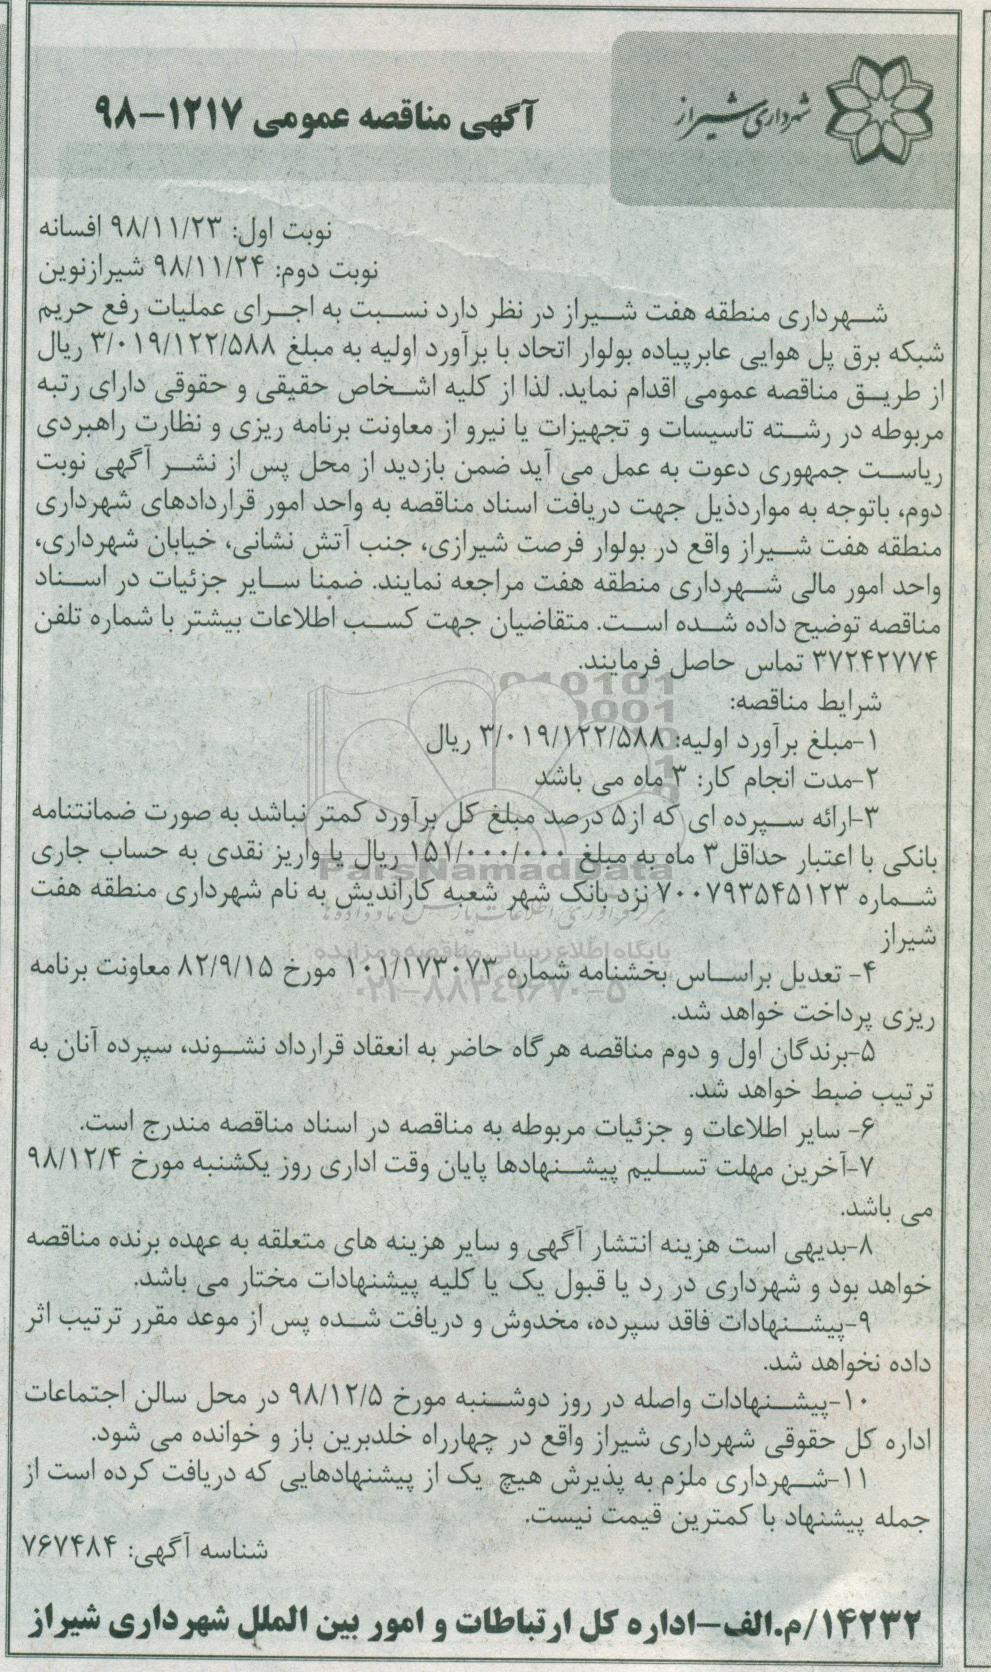 شهرداری شیراز
آگهی مناقصه عمومی ۱۲۱۷-۹۸
نوبت اول: ۹۸/۱۱/۲۳ افسانه
نوبت دوم: ۹۸/۱۱/۲۴ شیرازنوین
شهرداری منطقه هفت شیراز در نظر دارد نسبت به اجرای عملیات رفع حریم
شبکه برق پل هوایی عابرپیاده بولوار اتحاد با برآورد اولیه به مبلغ ۳/۰۱۹/۱۲۲/۵۸۸ ریال
از طریق مناقصه عمومی اقدام نماید. لذا از کلیه اشخاص حقیقی و حقوقی دارای رتبه
مربوطه در رشته تاسیسات و تجهیزات یا نیرو از معاونت برنامه ریزی و نظارت راهبردی
ریاست جمهوری دعوت به عمل می آید ضمن بازدید از محل پس از نشر آگهی نوبت
دوم، باتوجه به مواردذیل جهت دریافت اسناد مناقصه به واحد امور قراردادهای شهرداری
منطقه هفت شیراز واقع در بولوار فرصت شیرازی، جنب آتش نشانی، خیابان شهرداری،
واحد امور مالی شهرداری منطقه هفت مراجعه نمایند. ضمنا سایر جزئیات در اسناد
مناقصه توضیح داده شده است. متقاضیان جهت کسب اطلاعات بیشتر با شماره تلفن
۳۷۲۴۲۷۷۴ تماس حاصل فرمایند.
شرایط مناقصه:
۱-مبلغ برآورد اولیه: ۳/۰۱۹/۱۲۲/۵۸۸ ریال
۲-مدت انجام کار: ۳ ماه می باشد
۳-ارائه سپرده ای که از۵ درصد مبلغ کل برآورد کمتر نباشد به صورت ضمانتنامه
بانکی با اعتبار حداقل۳ ماه به مبلغ ۱۵۱/۰۰۰/۰۰۰ ریال یا واریز نقدی به حساب جاری
شماره ۷۰۰۷۹۳۵۴۵۱۲۳ نزد بانک شهر شعبه کاراندیش به نام شهرداری منطقه هفت
شیراز
۴- تعدیل براساس بخشنامه شماره ۱۰۱/۱۷۳۰۷۳ مورخ ۸۲/۹/۱۵ معاونت برنامه
ریزی پرداخت خواهد شد.
۵-برندگان اول و دوم مناقصه هرگاه حاضر به انعقاد قرارداد نشوند، سپرده آنان به
ترتیب ضبط خواهد شد.
۶- سایر اطلاعات و جزئیات مربوطه به مناقصه در اسناد مناقصه مندرج است.
۷-آخرین مهلت تسلیم پیشنهادها پایان وقت اداری روز یکشنبه مورخ ۹۸/۱۲/۴
می باشد.
۸-بدیهی است هزینه انتشار آگهی و سایر هزینه های متعلقه به عهده برنده مناقصه
خواهد بود و شهرداری در رد یا قبول یک یا کلیه پیشنهادات مختار می باشد.
۹-پیشنهادات فاقد سپرده، مخدوش و دریافت شده پس از موعد مقرر ترتیب اثر
داده نخواهد شد.
۱۰-پیشنهادات واصله در روز دوشنبه مورخ ۹۸/۱۲/۵ در محل سالن اجتماعات
اداره کل حقوقی شهرداری شیراز واقع در چهارراه خلدبرین باز و خوانده می شود.
۱۱-شهرداری ملزم به پذیرش هیچ یک از پیشنهادهایی که دریافت کرده است از
جمله پیشنهاد با کمترین قیمت نیست.
شناسه آگهی: ۷۶۷۴۸۴
۱۴۲۳۲/م.الف-اداره کل ارتباطات و امور بین الملل شهرداری شیراز
ParsNamadData
پایگاه اطلاع رسانی مناقصه و مزایده
۰۲۱-۸۸۳۴۹۶۷۰-۵